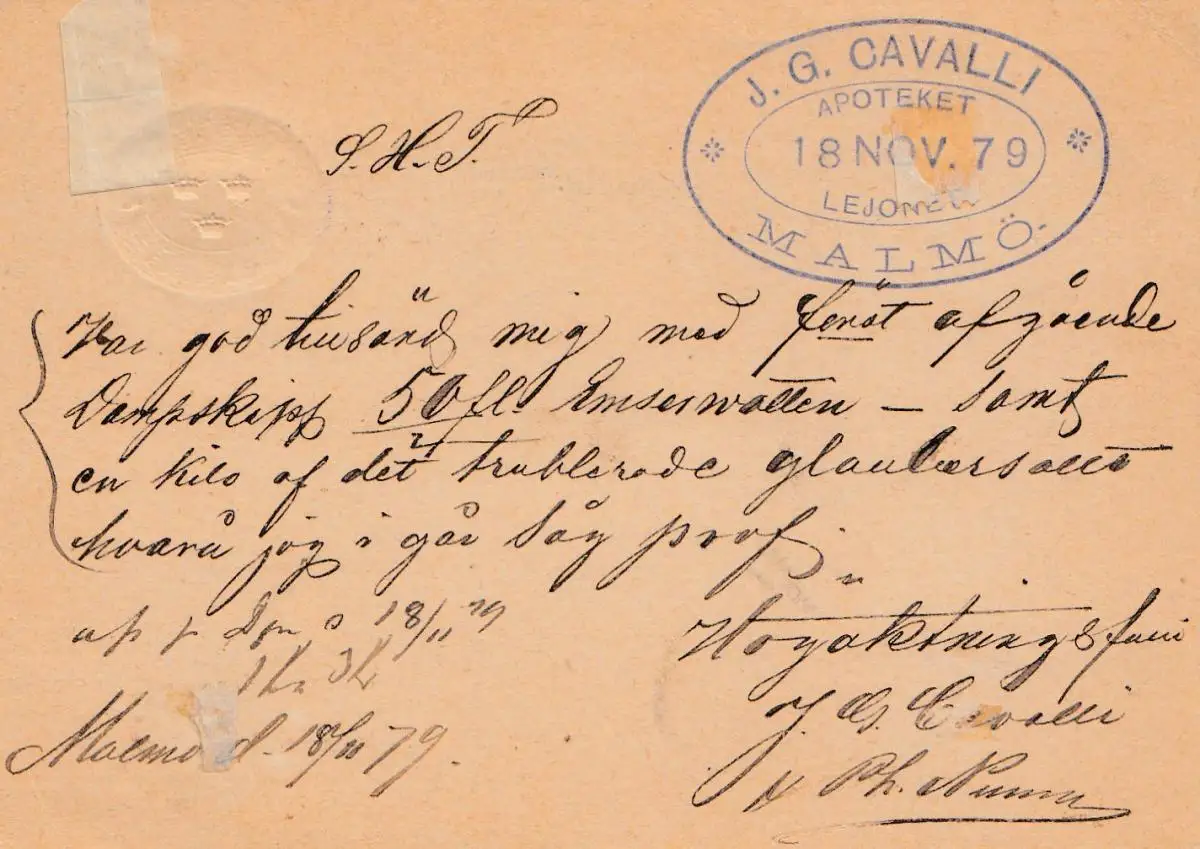 J. G. CAVALLI
APOTEKET
18 NOV. 79
LEJONET
MALMÖ.
S. H. T.
Var god tillsänd mig med först afgående
Dampskepp 50 fl. Emserwatten — samt
en Kilo af det trublerade glaubersalt
hvarå jag i går såg prof.
18/11 79
Högaktningsfull
J. G. Cavalli
Malmö d. 18/11 79.
Ph.